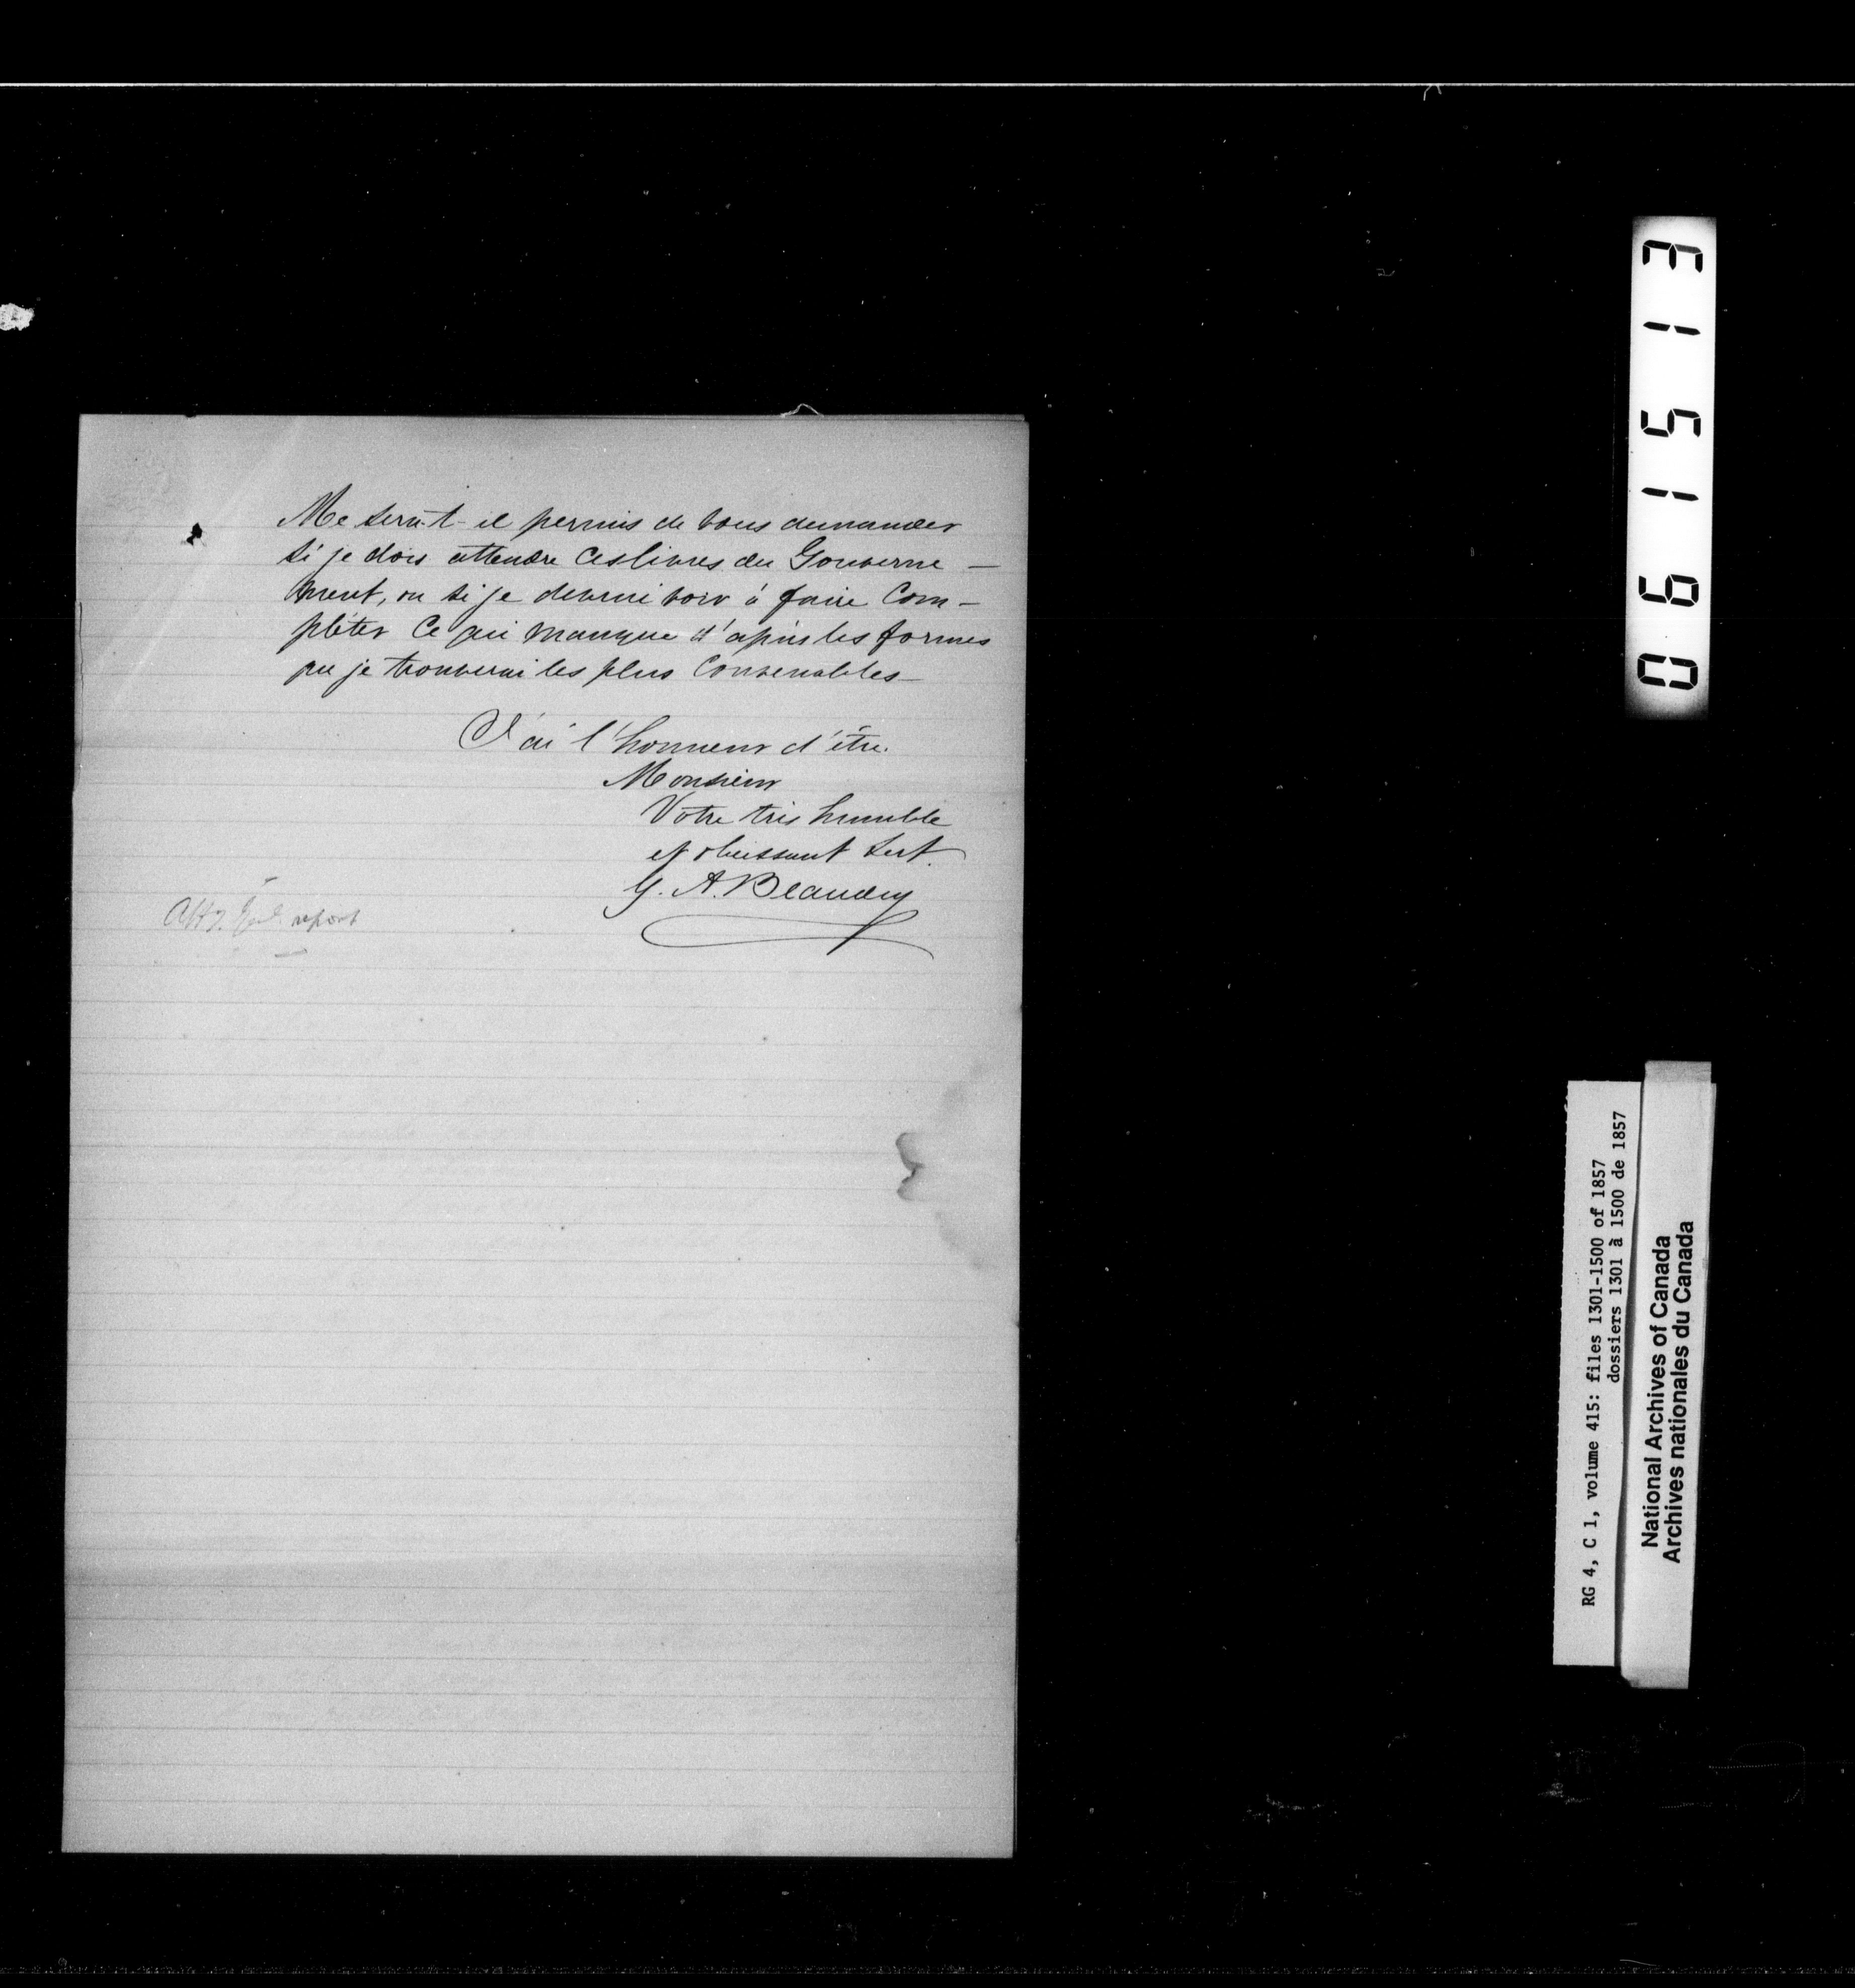 Me sera-t-il permis de vous demander
si je dois attendre ces livres du Gouverne-
ment, ou si je devrai voir à faire Com-
pléter Ce qui manque d'après les formes
que je trouverai les plus Convenables—
J'ai l'honneur d'être.
Monsieur
Votre très humble
et obeissant Sert.
G. A. Beaudry
Atty. Genl. report
061513
RG 4, C 1, volume 415: files 1301-1500 of 1857
dossiers 1301 à 1500 de 1857
National Archives of Canada
Archives nationales du Canada